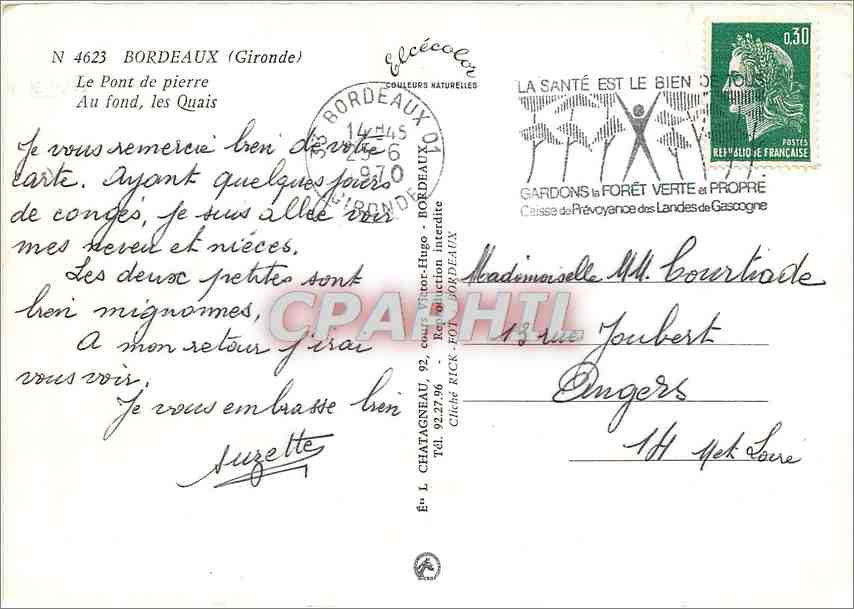 N 4623 BORDEAUX (Gironde)
Le Pont de pierre
Au fond, les Quais
Elcécolor
COULEURS NATURELLES
33 BORDEAUX 01
14H45
25-6
1970
GIRONDE
LA SANTÉ EST LE BIEN DE TOUS
GARDONS la FORÊT VERTE et PROPRE
Caisse de Prévoyance des Landes de Gascogne
0,30
POSTES
REPUBLIQUE FRANÇAISE
Je vous remercie bien de votre
carte. Ayant quelques jours
de congés, je suis allée voir
mes neveu et nièces.
Les deux petites sont
bien mignonnes,
A mon retour j'irai
vous voir.
Je vous embrasse bien
Suzette
Éts L CHATAGNEAU, 92, cours Victor-Hugo - BORDEAUX
Tél. 92.27.96 - Reproduction interdite
Cliché RICK-FOT BORDEAUX
Mademoiselle MM. Courtiade
13 rue Joubert
Angers
Met Loire
CPARHTL